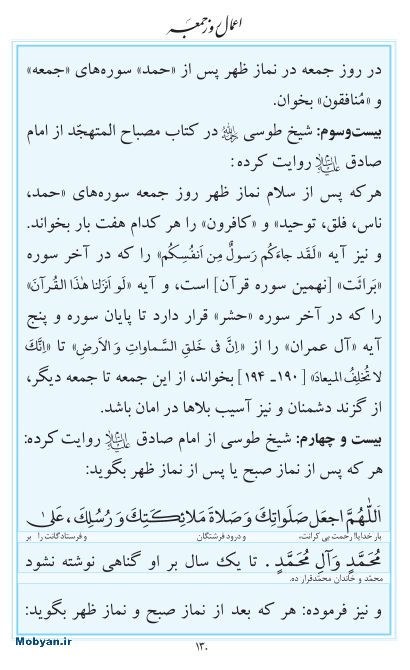 اعمال روز جمعه
در روز جمعه در نماز ظهر پس از «حمد» سوره‌های «جمعه»
و «مُنافقون» بخوان.
بیست‌وسوم: شیخ طوسی ﵀ در کتاب مصباح المتهجّد از امام
صادق ﵇ روایت کرده:
هرکه پس از سلام نماز ظهر روز جمعه سوره‌های «حمد،
ناس، فلق، توحید» و «کافرون» را هر کدام هفت بار بخواند.
و نیز آیه «لَقَد جاءَکُم رَسولٌ مِن اَنفُسِکُم» را که در آخر سوره
«بَرائَت» [نهمین سوره قرآن] است، و آیه «لَو اَنزَلنا هٰذَا القُرآنَ»
را که در آخر سوره «حشر» قرار دارد تا پایان سوره و پنج
آیه «آل عمران» را از «اِنَّ فی خَلقِ السَّماواتِ وَ الاَرضِ» تا «اِنَّکَ
لا تُخلِفُ المیعادَ» [۱۹۰ـ ۱۹۴] بخواند، از این جمعه تا جمعه دیگر،
از گزند دشمنان و نیز آسیب بلاها در امان باشد.
بیست و چهارم: شیخ طوسی از امام صادق ﵇ روایت کرده:
هر که پس از نماز صبح یا پس از نماز ظهر بگوید:
اَللّٰهُمَّ اجعَل صَلَواتِكَ وَ صَلاةَ مَلائِکَتِكَ وَ رُسُلِكَ، عَلیٰ
بار خدایا! رحمت بی کرانت، و درود فرشتگان و فرستادگانت را بر
مُحَمَّدٍ وَ آلِ مُحَمَّدٍ. تا یك سال بر او گناهی نوشته نشود
محمّد و خاندان محمّد قرار ده.
و نیز فرموده: هر که بعد از نماز صبح و نماز ظهر بگوید:
Mobyan.ir
۱۳۰